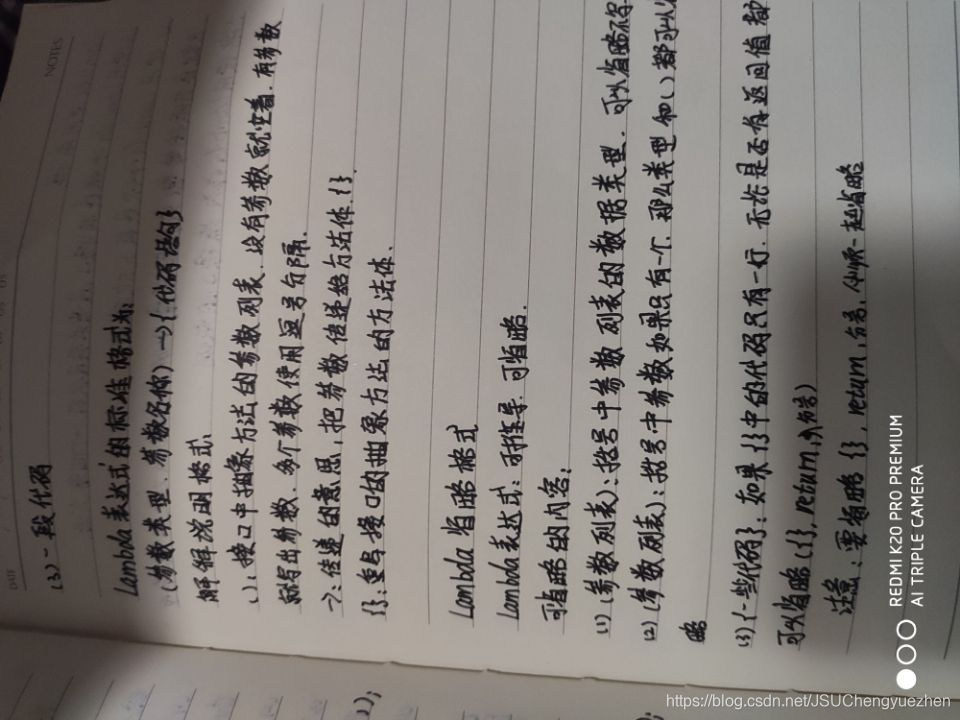 NOTES
DATE
(3) 一段代码
Lambda表达式的标准格式为:
(参数类型 参数名称) -> {代码语句}
解释说明格式:
():接口中抽象方法的参数列表,没有参数就空着,有参数
就写出参数,多个参数使用逗号分隔.
->:传递的意思,把参数传递给方法体{}.
{}:重写接口的抽象方法的方法体.
Lambda省略格式
Lambda表达式:可推导,可省略.
可省略的内容:
(1)(参数列表):括号中参数列表的数据类型,可以省略不写
(2)(参数列表):括号中参数如果只有一个,那么类型和()都可以省
略
(3){一些代码}:如果{}中的代码只有一行,无论是否有返回值都
可以省略({},return,分号)
注意:要省略{},return,分号,必须一起省略
REDMI K20 PRO PREMIUM
AI TRIPLE CAMERA
https://blog.csdn.net/JSUChengyuezhen
);